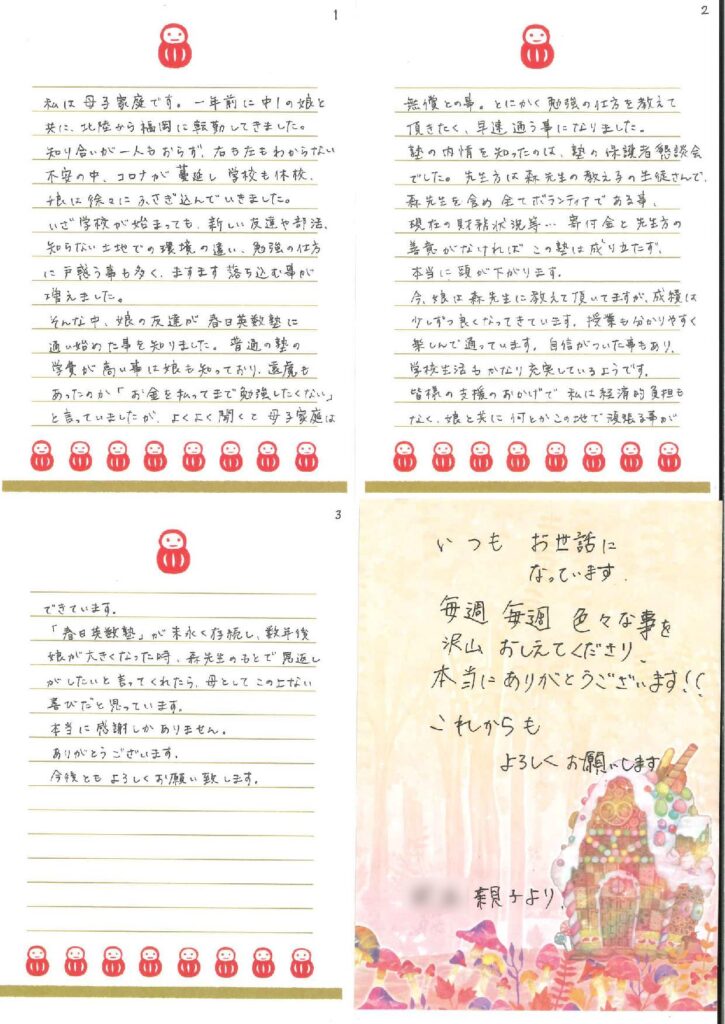 1
私は母子家庭です。一年前に中1の娘と
共に、北陸から福岡に転勤してきました。
知り合いが一人もおらず、右も左もわからない
不安の中、コロナが蔓延し学校も休校、
娘は徐々にふさぎ込んでいきました。
いざ学校が始まっても、新しい友達や部活、
知らない土地での環境の違い、勉強の仕方
に戸惑う事も多く、ますます落ち込む事が
増えました。
そんな中、娘の友達が春日英数塾に
通い始めた事を知りました。普通の塾の
学費が高い事は娘も知っており、遠慮も
あったのか「お金を払ってまで勉強したくない」
と言っていましたが、よくよく聞くと母子家庭は
2
無償との事。とにかく勉強の仕方を教えて
頂きたく、早速通う事になりました。
塾の内情を知ったのは、塾の保護者懇談会
でした。先生方は森先生の教え子の生徒さんで、
森先生を含め全てボランティアである事、
現在の財務状況等…寄付金と先生方の
善意がなければこの塾は成り立たず、
本当に頭が下がります。
今、娘は森先生に教えて頂いてますが、成績は
少しずつ良くなってきています。授業も分かりやすく
楽しんで通っています。自信がついた事もあり、
学校生活もかなり充実しているようです。
皆様の支援のおかげで私は経済的負担も
なく、娘と共に何とかこの地で頑張る事が
3
できています。
「春日英数塾」が末永く存続し、数年後
娘が大きくなった時、森先生のもとで恩返し
がしたいと言ってくれたら、母としてこの上ない
喜びだと思っています。
本当に感謝しかありません。
ありがとうございます。
今後ともよろしくお願い致します。
いつも お世話に
なっています。
毎週 毎週 色々な事を
沢山 おしえてくださり、
本当にありがとうございます!!
これからも
よろしくお願いします
親子より。